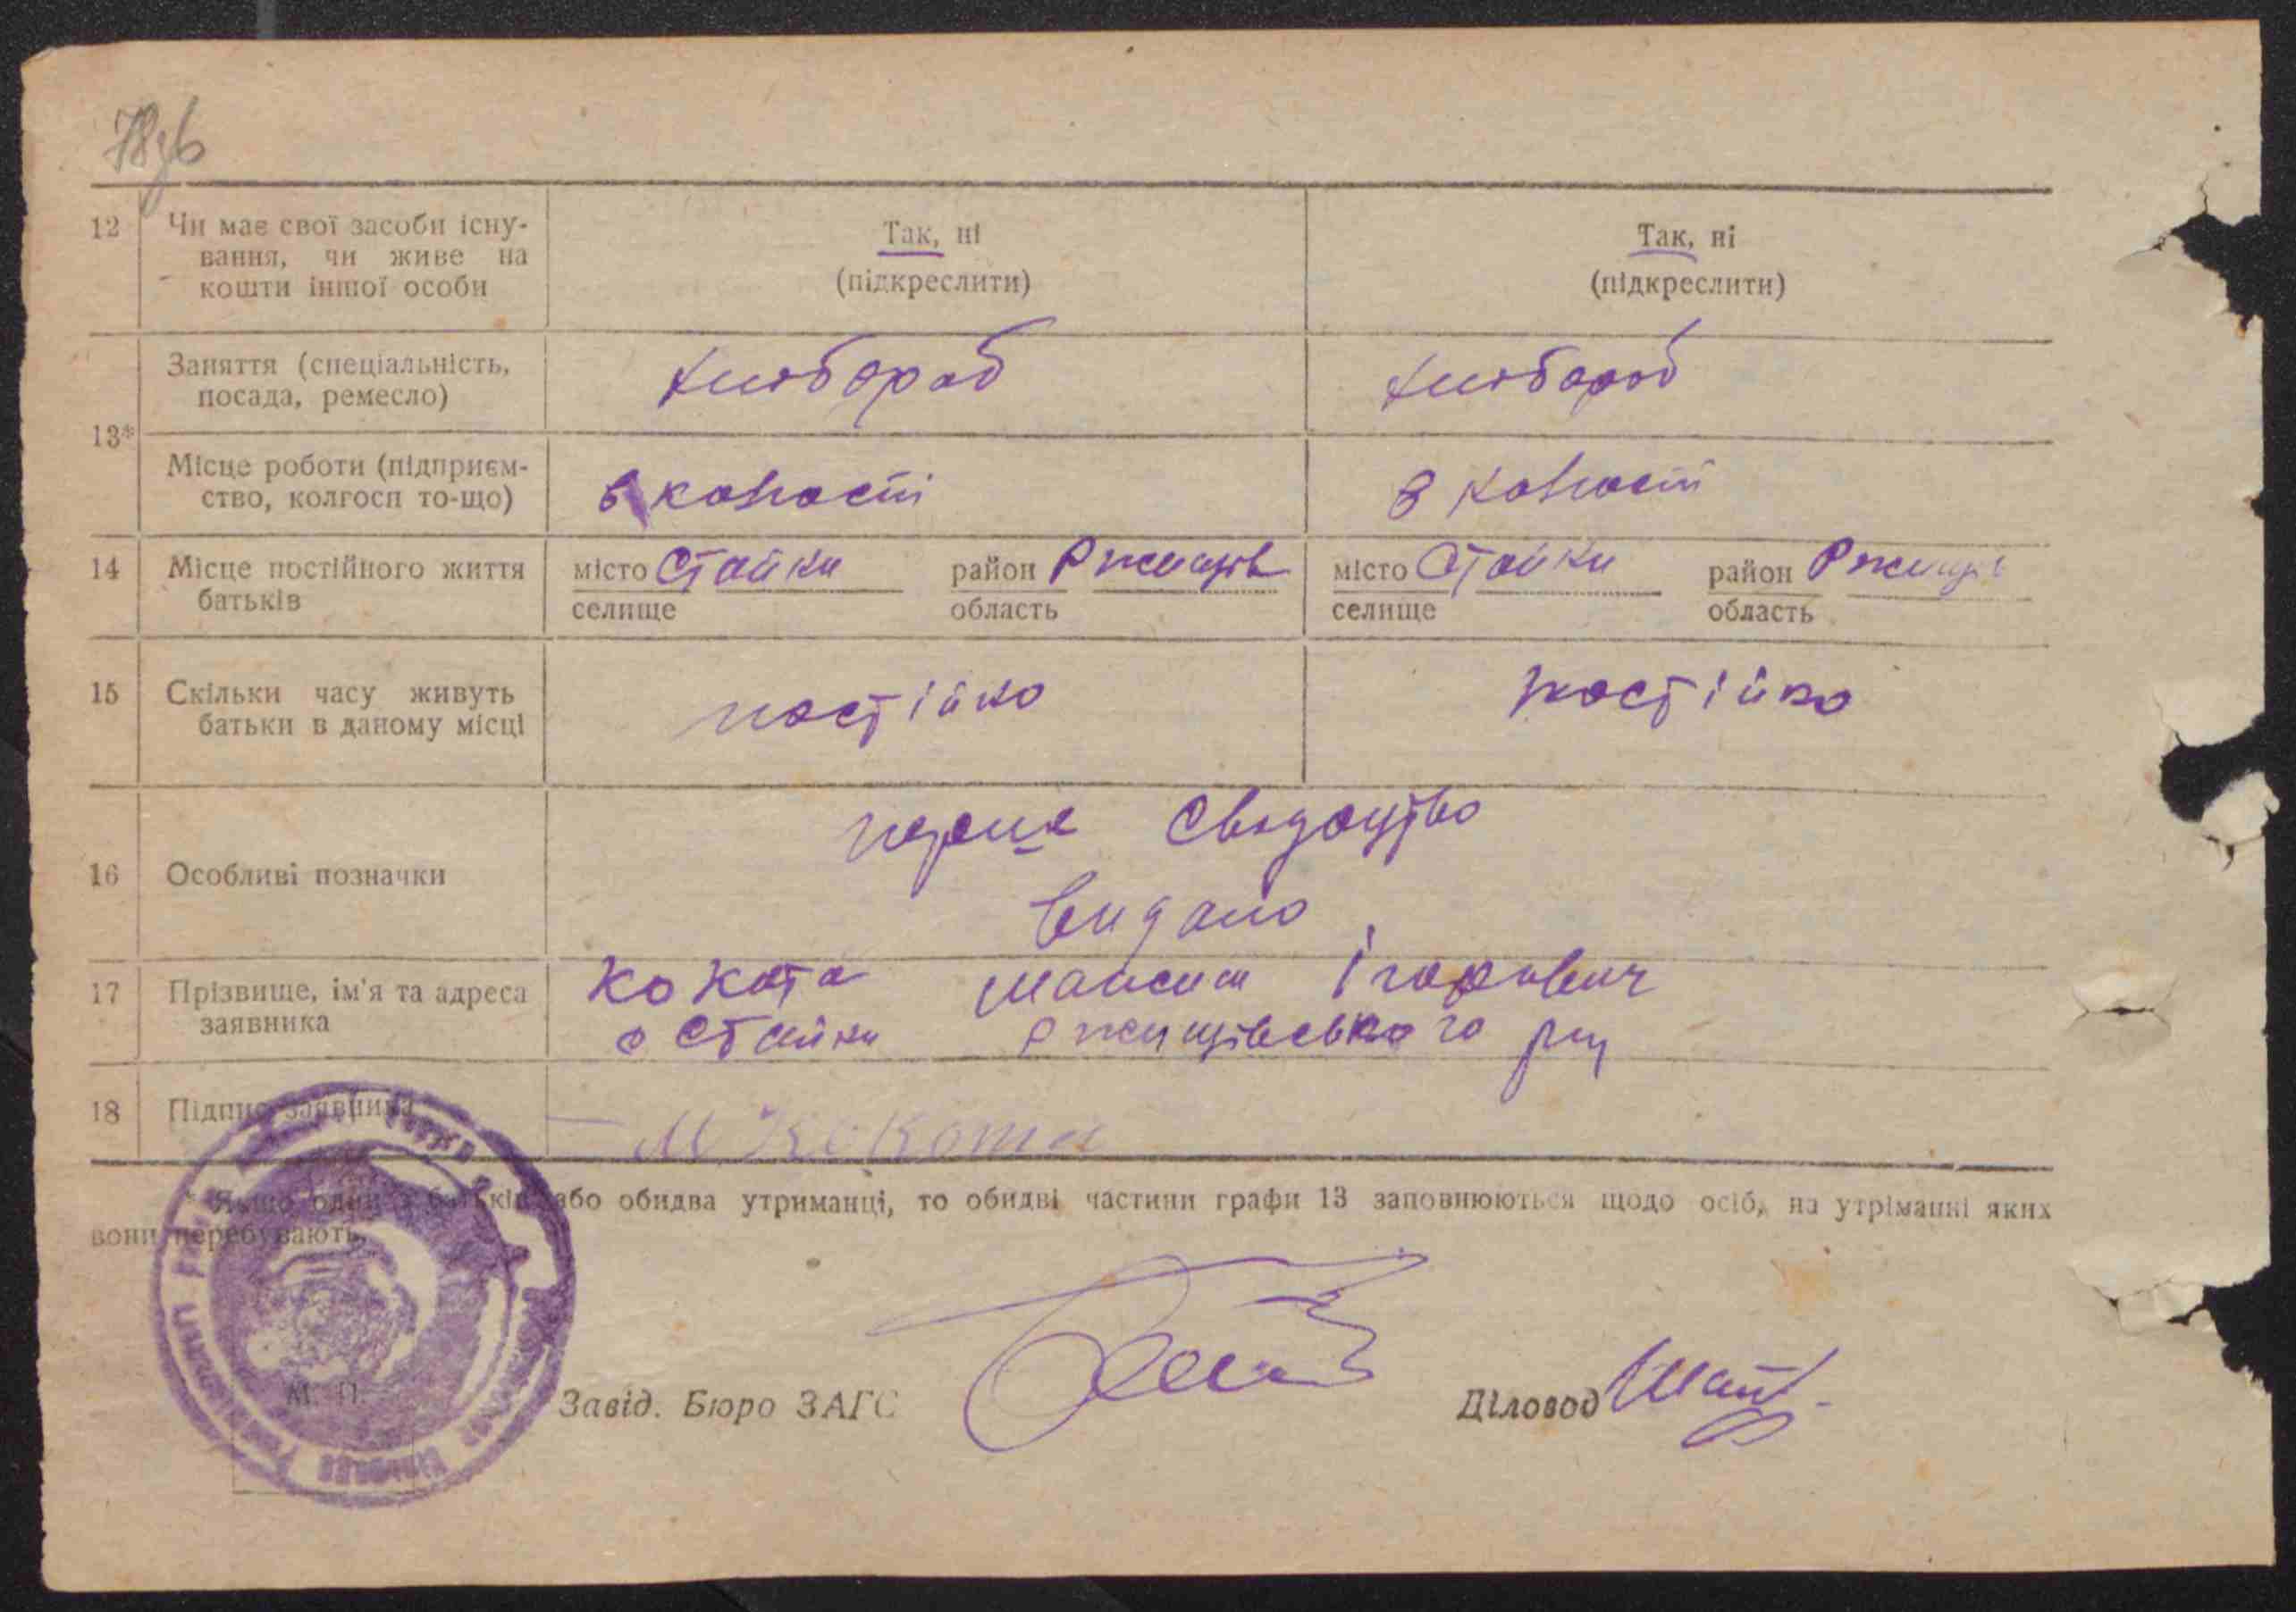 78зв
12 Чи має свої засоби існу-
вання, чи живе на
кошти іншої особи
Так, ні
(підкреслити)
Так, ні
(підкреслити)
13*
Заняття (спеціальність,
посада, ремесло)
хлібороб
хлібороб
Місце роботи (підприєм-
ство, колгосп то-що)
в колгоспі
в колгоспі
14 Місце постійного життя
батьків
місто Стайки район Ржищів
селище область
місто Стайки район Ржищів
селище область
15 Скільки часу живуть
батьки в даному місці
постійно
постійно
16 Особливі позначки
перше свідоцтво
видано
17 Прізвище, ім'я та адреса
заявника
Кокота Максим Ігорович
с Стайки Ржищівського р-ну
18 Підпис заявника
М Кокота
* Якщо один з батьків або обидва утриманці, то обидві частини графи 13 заповнюються щодо осіб, на утріманні яких
вони перебувають.
М. П.
Завід. Бюро ЗАГС
Діловод